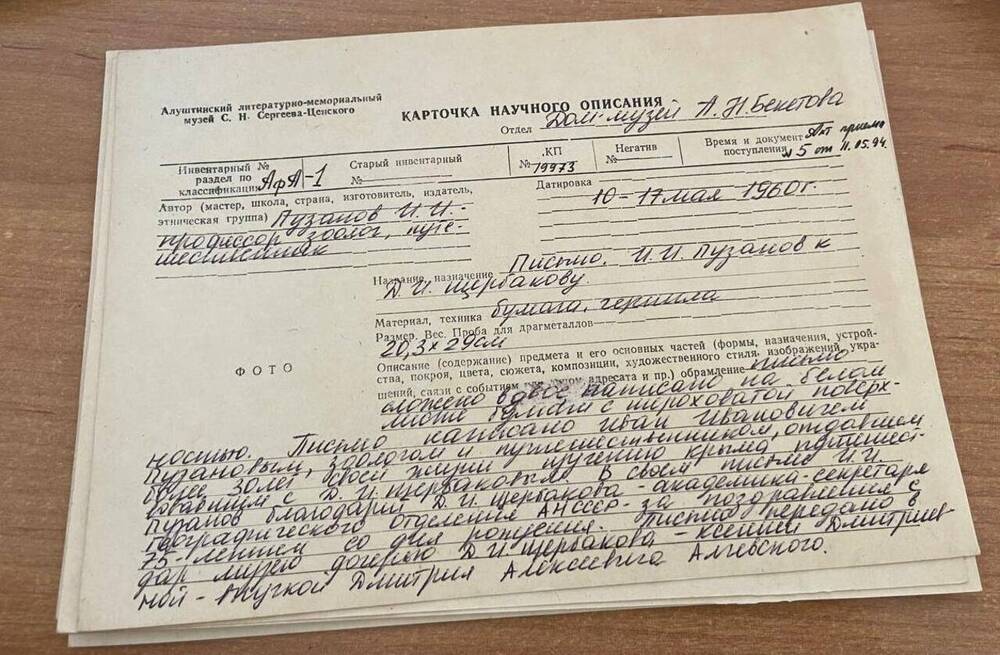 Алуштинский литературно-мемориальный
музей С. Н. Сергеева-Ценского
КАРТОЧКА НАУЧНОГО ОПИСАНИЯ
Отдел Дом-музей А.Н.Бекетова
Инвентарный №
раздел по
классификации АфА-1
Старый инвентарный
№
КП
№ 19973
Негатив
№
Время и документ Акт приема
поступления №5 от 11.05.94.
Автор (мастер, школа, страна, изготовитель, издатель,
этническая группа) Пузанов И.И. -
профессор зоолог, путе-
шественник
Датировка
10-17 мая 1960г.
Название, назначение Письмо. И.И. Пузанов к
Д.И. Щербакову.
Материал, техника бумага, чернила
Размер. Вес. Проба для драгметаллов
20,3 х 29см
ФОТО
Описание (содержание) предмета и его основных частей (формы, назначения, устрой-
ства, покроя, цвета, сюжета, композиции, художественного стиля, изображений, укра-
шений, связи с событием адресата и пр.) обрамление письмо
сложено вдвое написано на белом
листе бумаги с шероховатой поверх-
ностью. Письмо написано Иван Ивановичем
Пузановым, зоологом и путешественником, отдавшим
более 30 лет своей жизни изучению Крыма, путешест-
вовавшим с Д.И. Щербаковым. В своем письме И.И.
Пузанов благодарит Д.И. Щербакова - академика-секретаря
географического отделения АН СССР - за поздравления с
75-лением со дня рождения. Письмо передано в
дар музею дочерью Д.И. Щербакова - Ксенией Дмитриев-
ной - внучкой Дмитрия Алексеевича Алчевского.